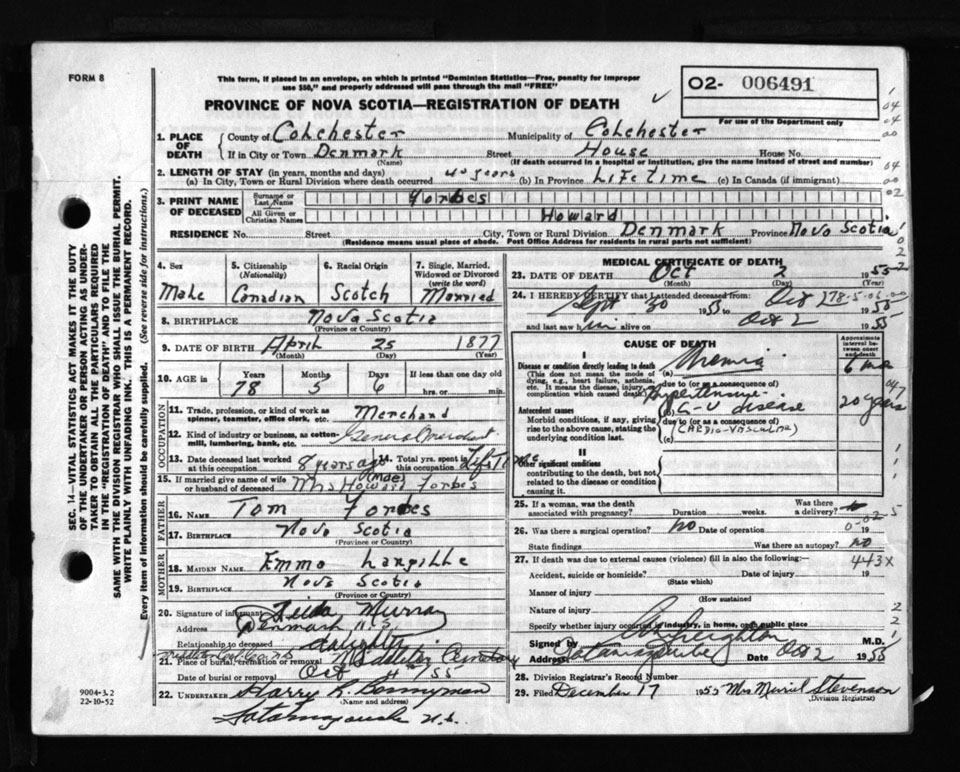 FORM 8
This form, if placed in an envelope, on which is printed "Dominion Statistics—Free, penalty for improper
use $50," and properly addressed will pass through the mail "FREE"
PROVINCE OF NOVA SCOTIA—REGISTRATION OF DEATH
02- 006491
For use of the Department only
1. PLACE OF DEATH County of Colchester Municipality of Colchester
If in City or Town Denmark Street House House No.
(Name) (If death occurred in a hospital or institution, give the name instead of street and number)
2. LENGTH OF STAY (in years, months and days)
(a) In City, Town or Rural Division where death occurred 40 years (b) In Province Life time (c) In Canada (if immigrant)
3. PRINT NAME OF DECEASED Surname or Last Name Forbes
All Given or Christian Names Howard
RESIDENCE No. Street City, Town or Rural Division Denmark Province Nova Scotia
(Residence means usual place of abode. Post Office Address for residents in rural parts not sufficient)
4. Sex Male
5. Citizenship (Nationality) Canadian
6. Racial Origin Scotch
7. Single, Married, Widowed or Divorced (write the word) Married
8. BIRTHPLACE Nova Scotia
(Province or Country)
9. DATE OF BIRTH April 25 1877
(Month) (Day) (Year)
10. AGE in Years 78 Months 5 Days 6 If less than one day old
hrs. or min.
OCCUPATION
11. Trade, profession, or kind of work as spinner, teamster, office clerk, etc. Merchand
12. Kind of industry or business, as cotton-mill, lumbering, bank, etc. General Merchant
13. Date deceased last worked at this occupation 8 years ago
14. Total yrs. spent in this occupation Life Time
15. If married give name of wife or husband of deceased (Mae) Mrs Howard Forbes
FATHER
16. NAME Tom Forbes
17. BIRTHPLACE Nova Scotia
(Province or Country)
MOTHER
18. MAIDEN NAME Emma Langille
19. BIRTHPLACE Nova Scotia
(Province or Country)
20. Signature of informant Murray
Address Denmark N.S.
Relationship to deceased daughter
21. Place of burial, cremation or removal Cemetery
Date of burial or removal Oct 4/55
22. UNDERTAKER Harry R. Bonnyman
(Name and address)
Tatamagouche N.S.
MEDICAL CERTIFICATE OF DEATH
23. DATE OF DEATH Oct 2 1955
(Month) (Day) (Year)
24. I HEREBY CERTIFY that I attended deceased from:
Sept 30 1955 to Oct 2 1955
and last saw him alive on Oct 2 1955
178-5-06-00
CAUSE OF DEATH
Approximate interval between onset and death
I
Disease or condition directly leading to death (a) Uremia 6 mo
(This does not mean the mode of dying, e.g., heart failure, asthenia, etc. It means the disease, injury, or complication which caused death)
due to (or as a consequence of)
Hypertensive
Antecedent causes (b) C-V disease 20 years
Morbid conditions, if any, giving rise to the above cause, stating the underlying condition last.
due to (or as a consequence of)
(CARDIO-VASCULAR)
(c)
II
Other significant conditions
contributing to the death, but not related to the disease or condition causing it.
25. If a woman, was the death associated with pregnancy? Duration weeks. Was there a delivery?
26. Was there a surgical operation? No Date of operation 19
State findings Was there an autopsy? no
27. If death was due to external causes (violence) fill in also the following:—
443X
Accident, suicide or homicide? Date of injury 19
(State which)
Manner of injury
(How sustained)
Nature of injury
Specify whether injury occurred in industry, in home, or in public place
Signed by Creighton M.D.
Address Tatamagouche Date Oct 2 1955
28. Division Registrar's Record Number
29. Filed December 17 1955 Mrs Muriel Stevenson
(Division Registrar)
9004-3.2
22-10-52
SEC. 14—VITAL STATISTICS ACT MAKES IT THE DUTY
OF THE UNDERTAKER OR PERSON ACTING AS UNDER-
TAKER TO OBTAIN ALL THE PARTICULARS REQUIRED
IN THE "REGISTRATION OF DEATH" AND TO FILE THE
SAME WITH THE DIVISION REGISTRAR WHO SHALL ISSUE THE BURIAL PERMIT.
WRITE PLAINLY WITH UNFADING INK. THIS IS A PERMANENT RECORD.
Every item of information should be carefully supplied. (See reverse side for instructions.)